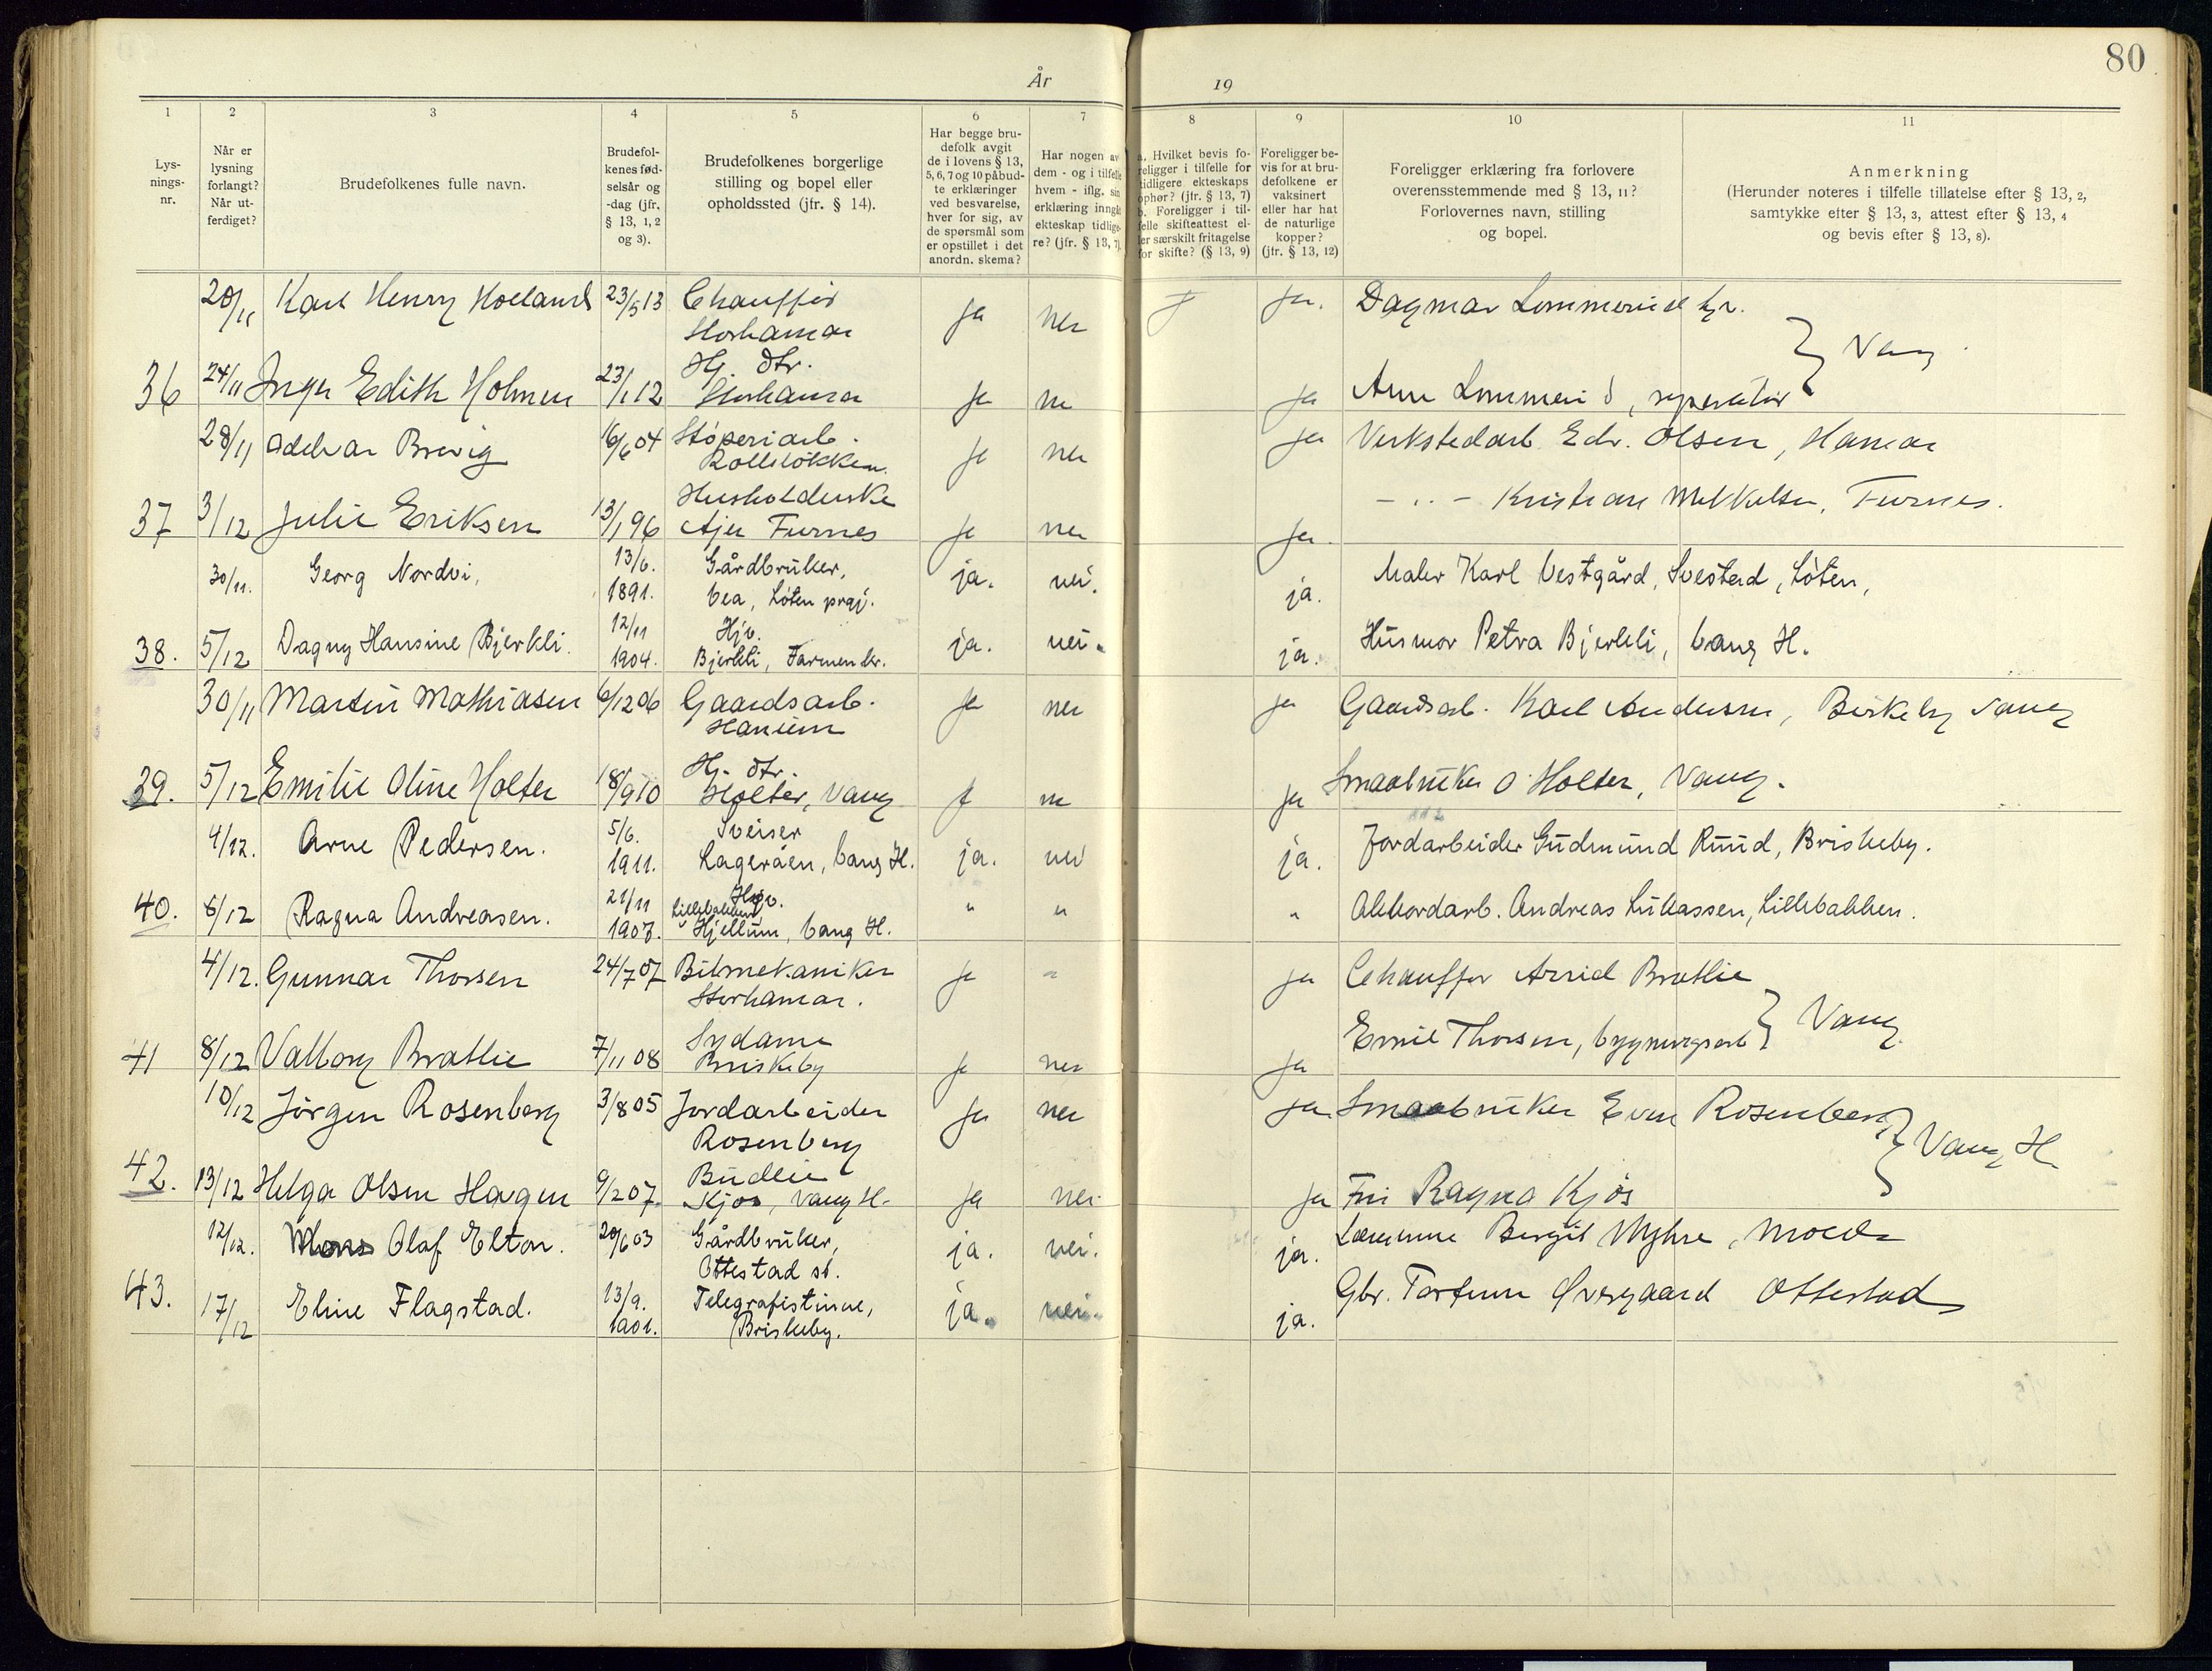 80
År 19
1 2 3 4 5 6 7 8 9 10 11
Lys-
nings-
nr.
Når er
lysning
forlangt?
Når ut-
ferdiget?
Brudefolkenes fulle navn.
Brudefol-
kenes fød-
selsår og
-dag (jfr.
§ 13, 1, 2
og 3).
Brudefolkenes borgerlige
stilling og bopel eller
opholdssted (jfr. § 14).
Har begge bru-
defolk avgit
de i lovens § 13,
5, 6, 7 og 10 påbud-
te erklæringer
ved besvarelse,
hver for sig, av
de spørsmål som
er opstillet i det
anordn. skema?
Har nogen av
dem - og i tilfelle
hvem - iflg. sin
erklæring inngåt
ekteskap tidlige-
re? (jfr. § 13, 7)
a. Hvilket bevis fo-
religger i tilfelle for
tidligere ekteskaps
ophør? (jfr. § 13, 7)
b. Foreligger i til-
felle skifteattest el-
ler særskilt fritagelse
for skifte? (§ 13, 9)
Foreligger be-
vis for at bru-
defolkene er
vaksinert
eller har hat
de naturlige
kopper?
(jfr. § 13, 12)
Foreligger erklæring fra forlovere
overensstemmende med § 13, 11?
Forlovernes navn, stilling
og bopel.
Anmerkning
(Herunder noteres i tilfelle tillatelse efter § 13, 2,
samtykke efter § 13, 3, attest efter § 13, 4
og bevis efter § 13, 8).
20/11 Karl Henry 23/5 13 Chauffør ja nei ja. Dagmar
Storhamar
} Vang
Hj. dtr.
36 24/11 Inger Edith Holmen 23/1 12 Storhamar ja nei ja
28/11 Brevig 16/6 04 Støperiarb. ja nei ja Verkstedarb. Edv. Olsen, Hamar
Husholderske
37 3/12 Julie Eriksen 13/1 96 Ajer Furnes ja nei ja - „ - Kristian Furnes.
30/11. Georg Nordvi, 13/6. Gårdbruker, ja. nei. ja. Maler Karl Vestgård, Løten,
1891. Løten prgj.
38. 5/12 Dagny Hansine Bjerkli. 12/11 Hjv. ja. nei. ja. Husmor Petra Bjerkli, Vang H.
1904. Bjerkli,
30/11 Martin Mathiasen 6/12 06 Gaardsarb. ja nei ja Gaardsarb. Karl Andersen, Vang
Hj. dtr.
39. 5/12 Emilie Oline Holter 18/9 10 Holter, Vang ja nei ja Smaabruker O Holter, Vang.
4/12. Arne Pedersen. 5/6. Sveiser ja. nei ja. Jordarbeider Gudmund Ruud, Briskeby.
1911. Lageråen, Vang H.
40. 8/12 Ragna Andreasen. 21/11 Hjv. " " " Akkordarb. Andreas Lukassen, Lillebakken.
Lillebakken
1907. Hjellum, Vang H.
4/12. Gunnar Thorsen 24/7 07 Bilmekaniker ja " ja Chauffør Arvid Bratlie
Storhamar.
Sydame
41 8/12 Valborg Bratlie 7/11 08 Briskeby ja nei ja Emil Thorsen, bygningsarb } Vang.
10/12 Jørgen Rosenberg 3/8 05 Jordarbeider ja nei ja Smaabruker Even Rosenberg
Rosenberg
} Vang H.
Budeie
42. 13/12 Helga Olsen Hagen 9/2 07. Kjos, Vang H. ja nei ja Fru Ragna Kjøs
12/12. Mons Olaf Elton. 20/6 03 Gårdbruker, ja. nei. ja. Myhre,
Ottestad st.
43. 17/12 Eline Flagstad. 13/9. Telegrafistinne, ja. nei. ja. Gbr. Øvergaard Ottestad
1901. Briskeby.